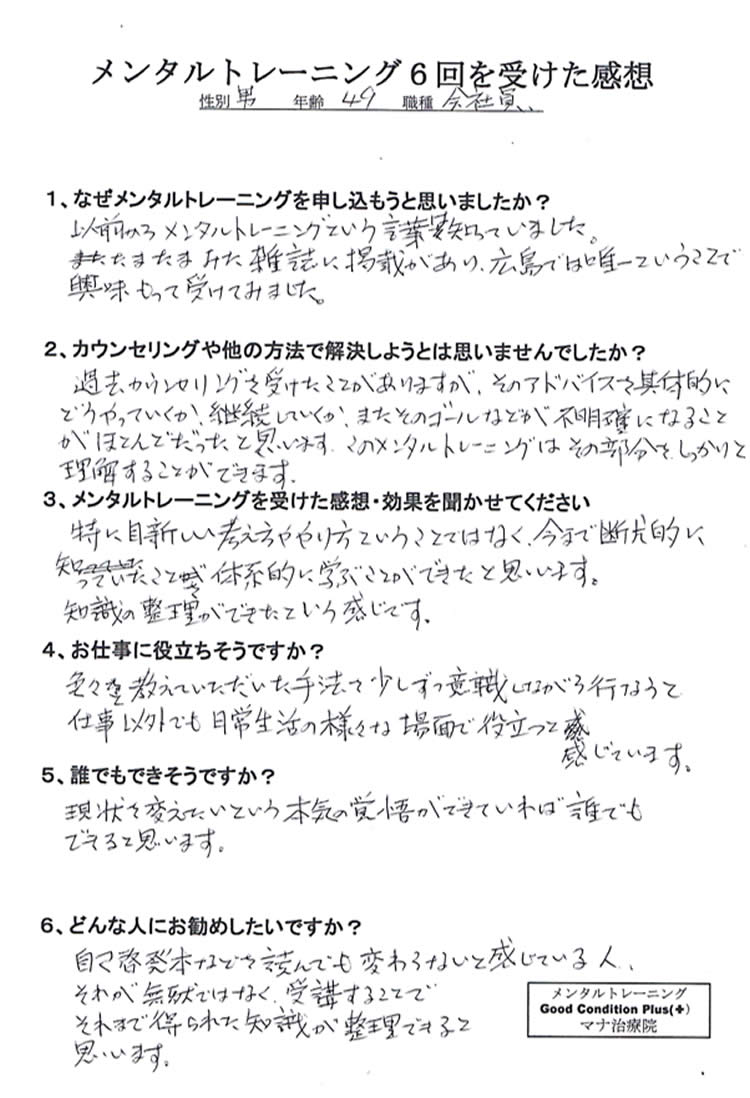 メンタルトレーニング６回を受けた感想
性別 男 年齢 49 職種 会社員
１、なぜメンタルトレーニングを申し込もうと思いましたか？
以前からメンタルトレーニングという言葉知っていました。
たまたまみた雑誌に掲載があり、広島では唯一ということで
興味もって受けてみました。
２、カウンセリングや他の方法で解決しようとは思いませんでしたか？
過去カウンセリングを受けたことがありますが、そのアドバイスを具体的に
どうやっていくか、継続していくか、またそのゴールなどが不明確になること
がほとんどだったと思います。このメンタルトレーニングはその部分をしっかりと
理解することができます。
３、メンタルトレーニングを受けた感想・効果を聞かせてください
特に目新しい考え方ややり方ということではなく、今まで断片的に
知っていたことが体系的に学ぶことができたと思います。
知識の整理ができたという感じです。
４、お仕事に役立ちそうですか？
色々教えていただいた手法で少しずつ意識しながら行なうと
仕事以外でも日常生活の様々な場面で役立つと
感じています。
５、誰でもできそうですか？
現状を変えたいという本気の覚悟ができていれば誰でも
できると思います。
６、どんな人にお勧めしたいですか？
自己啓発本などを読んでも変わらないと感じている人、
それが無駄ではなく、受講することで
それまで得られた知識が整理できると
思います。
メンタルトレーニング
Good Condition Plus(+)
マナ治療院